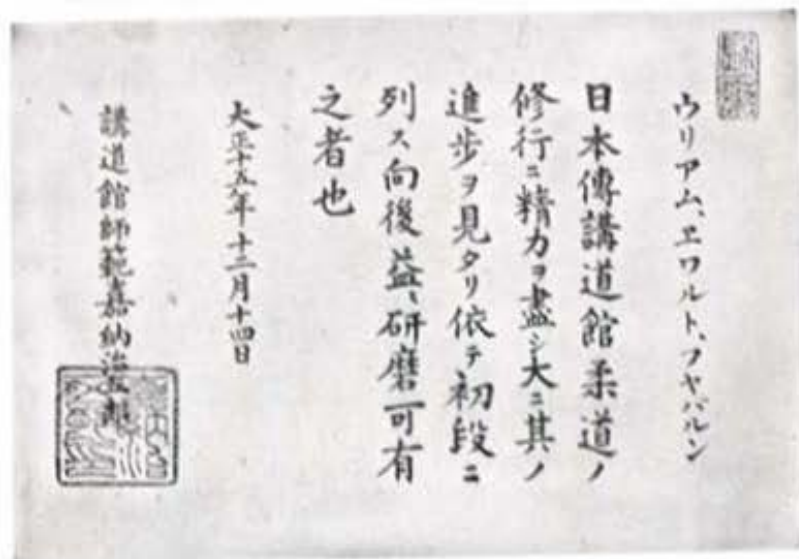 ウリアム、ヱワルト、フヤバルン
日本傳講道館柔道ノ
修行ニ精力ヲ盡シ大ニ其ノ
進歩ヲ見タリ依テ初段ニ
列ス向後益々研磨可有
之者也
大正十五年十二月十四日
講道館師範嘉納治五郎